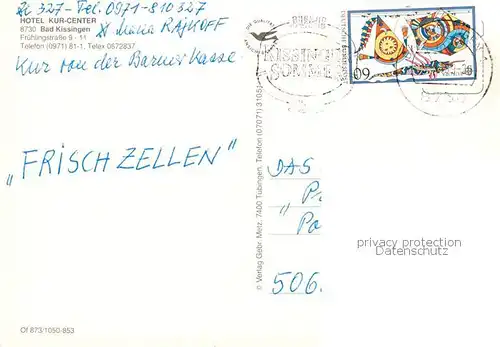 Zi 327 - Tel. 0971-810327
HOTEL KUR-CENTER
8730 Bad Kissingen
Frühlingstraße 9 - 11
Telefon (0971) 81-1, Telex 0672837
Maria RAJKOFF
Kur von der Barmer Kasse
"FRISCHZELLEN"
Of 873/1050-853
© Verlag Gebr. Metz, 7400 Tübingen, Telefon (07071) 3105
KISSINGER
SOMMER
60
DAS
"P
Pa
506.
privacy protection
Datenschutz